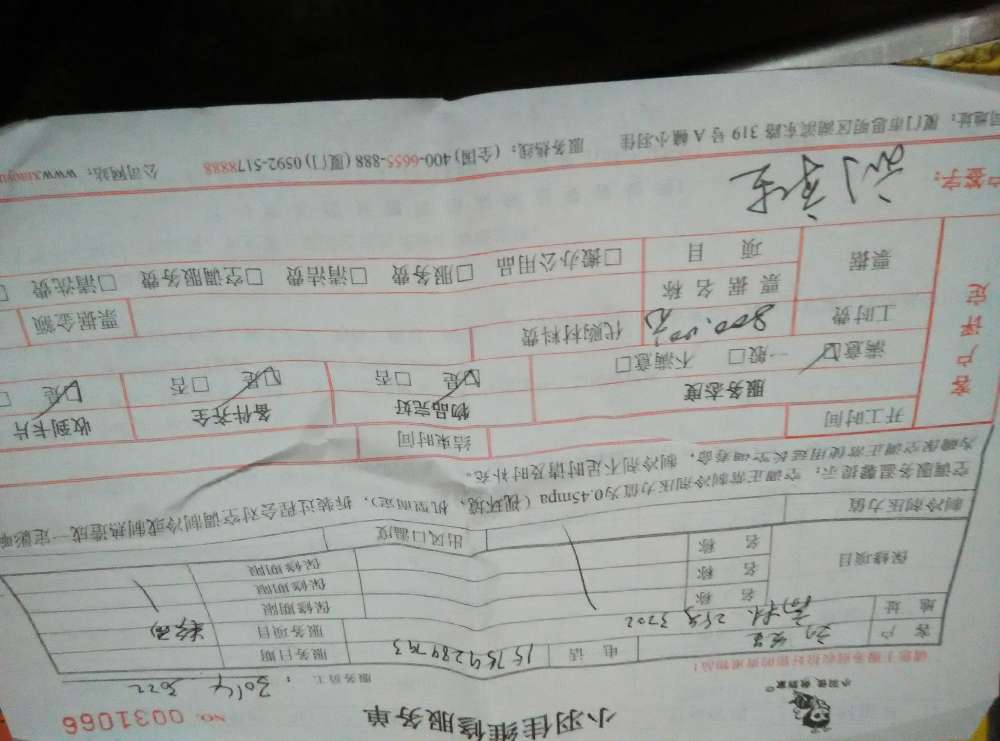 小羽佳维修服务单
NO. 0031066
小羽佳，收到家
服务员工：3014 3022
请您于服务前收拾好您的贵重物品！
客户 电话 15759284793 服务日期
地址 25号 3702 服务项目
保修项目 名称 保修期限
名称 保修期限
名称 保修期限
制冷剂压力值 出风口温度
空调服务温馨提示：空调正常制冷剂压力值为0.45mpa（视环境、机型而定），拆装过程会对空调制冷或制热造成一定影响
为确保空调正常使用延长空调寿命，制冷剂不足时请及时补充。
客户评定
开工时间 结束时间
服务态度 物品完好 备件齐全 收到卡片
☑满意 一般□ 不满意□ ☑是 □否 ☑是 □否 ☑是
工时费 800.00元 代购材料费
票据 票据名称 票据金额
项目 □搬办公用品 □服务费 □清洁费 □空调服务费 □清洗费
户签字：
司地址：厦门市思明区湖滨东路319号A幢小羽佳 服务热线：(全国) 400-6655-888 (厦门) 0592-5178888 公司网站：www.xiaoyu